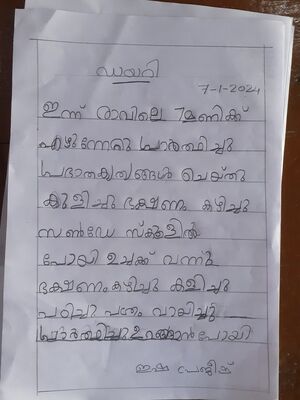 ഡയറി
7-1-2024
ഇന്ന് രാവിലെ 7മണിക്ക്
എഴുന്നേറ്റു പ്രാർത്ഥിച്ചു
പ്രഭാതകൃത്യങ്ങൾ ചെയ്തു
കുളിച്ചു ഭക്ഷണം കഴിച്ചു
സൺഡേ സ്കൂളിൽ
പോയി ഉച്ചക്ക് വന്നു
ഭക്ഷണം കഴിച്ചു കളിച്ചു
പഠിച്ചു പത്രം വായിച്ചു
പ്രാർത്ഥിച്ചു ഉറങ്ങാൻ പോയി